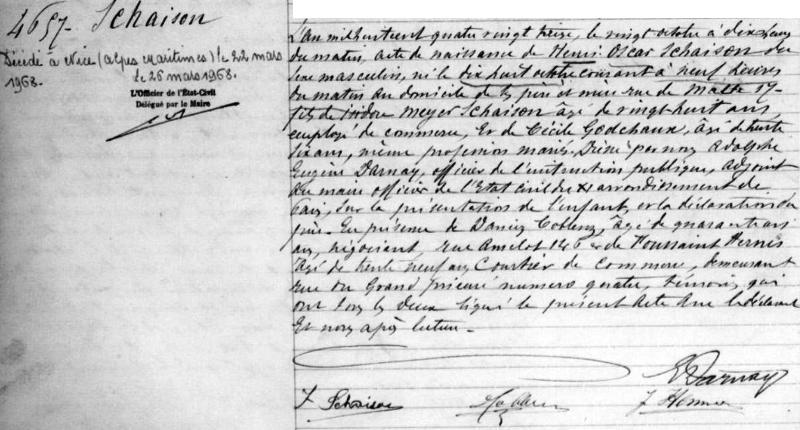 4657 - Schaison
Décédé à Nice (Alpes Maritimes) le 22 mars
1968.
le 26 mars 1968.
L'Officier de l'État-Civil
Délégué par le Maire
L'an mil huit cent quatre vingt treize, le vingt octobre à dix heures
du matin, acte de naissance de Henri Oscar Schaison du
sexe masculin, né le dix huit octobre courant à neuf heures
du matin au domicile de ses père et mère rue de Malte 17
fils de Isidore Meyer Schaison âgé de vingt-huit ans
employé de commerce, et de Cécile Godchaux, âgé de trente
six ans, même profession mariés. Dressé par nous Adolphe
Eugène Darnay, officier de l'instruction publique, adjoint
au maire officier de l'Etat civil du XI arrondissement de
Paris, sur la présentation de l'enfant, et la déclaration du
père. En présence de Coblenz, âgé de quarante
ans, négociant, rue Amelot 146 et de Toussaint
âgé de trente neuf ans Courtier de Commerce, demeurant
rue du Grand prieuré numéro quatre, témoins qui
ont tous les deux signé le présent acte avec le déclarant
Et nous après lecture -
E Darnay
Schaison